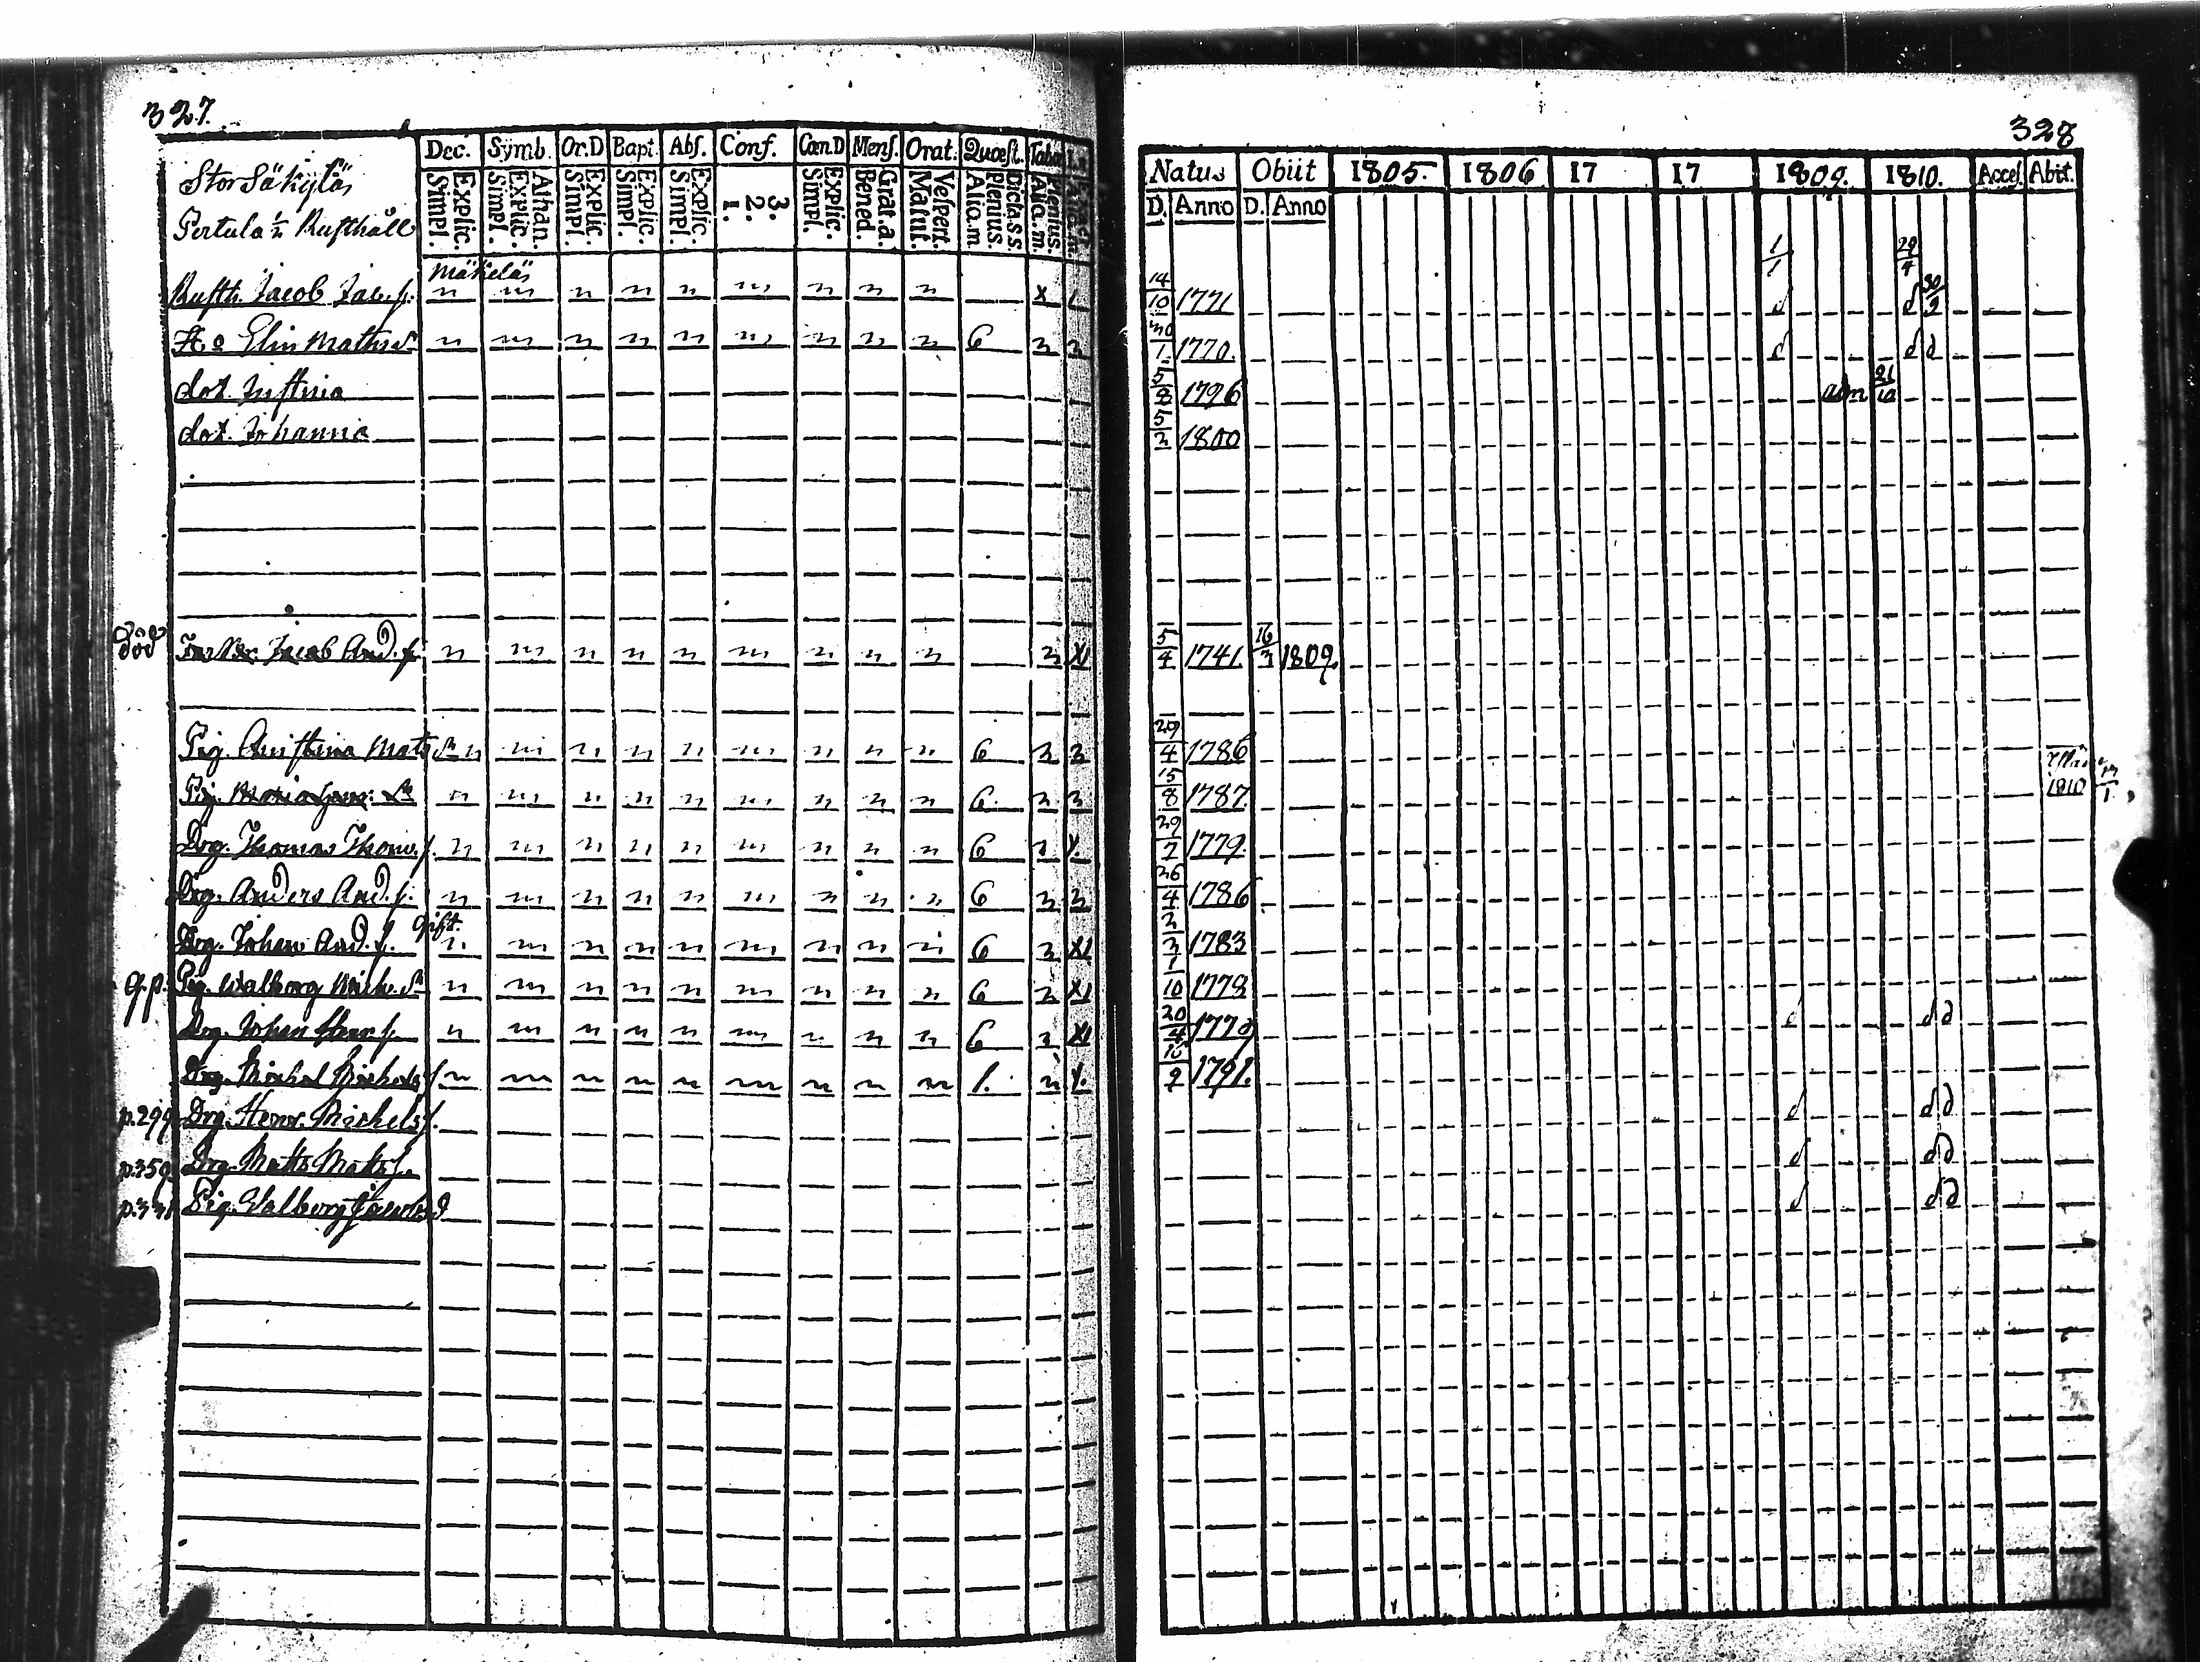 327.
Stor Säkylä
Pertula ½ Rusthåll
Dec. Symb. Or.D Bapt. Abs. Conf. Cœn.D Mens. Orat. Quæst.
Explic. Simpl. Athan. Explic. Simpl. Explic. Simpl. Explic. Simpl. Explic. Simpl. 3. 2. 1. Explic. Simpl. Grat. a. Bened. Vespert. Matut. Dicta.s.s. Plenius. Aliq.m. Plenius. Aliq.m.
Mäkelä
Rusth. Jacob Jac.s. n m n n n m n n n x
H:o Elin Mats d:r n m n n n m n n n 6
dot. Justina
dot. Johanna
död Jacob And. s. n m n n n m n n n XI
Pig. Christina Mats d:r n m n n n m n n n 6
Pig. Maria d:r n m n n n m n n n 6
Drg. Thomas Thom. s. n m n n n m n n n 6
Drg. Anders And. s. n m n n n m n n n 6
gift.
Drg. Johan And. s. n m n n n m n n n 6 XI
Pig. Walborg Mich. d:r n m n n n m n n n 6 XI
Drg. Johan s. n m n n n m n n n 6 XI
Drg. Michel Michels s. n m n n n m n n n 1.
p.299 Drg. Henr. Michels s.
p.359 Drg. Matts Matts s.
Pig. Valborg Jacobs d
328
Natus Obiit 1805. 1806 17 17 1809. 1810. Acces. Abit.
D. Anno D. Anno
1/1 29/4
14/10 1771 d d 30/9
30/1 1770. d d d
5/8 1796 adm 21/10
5/2 1800
5/4 1741. 16/3 1809.
29/4 1786
15/8 1787. 1810
29/7 1779.
26/4 1786
2/3 1783
1/10 1778
20/4 1779 d d d
16/9 1791.
d d d
d d d
d d d